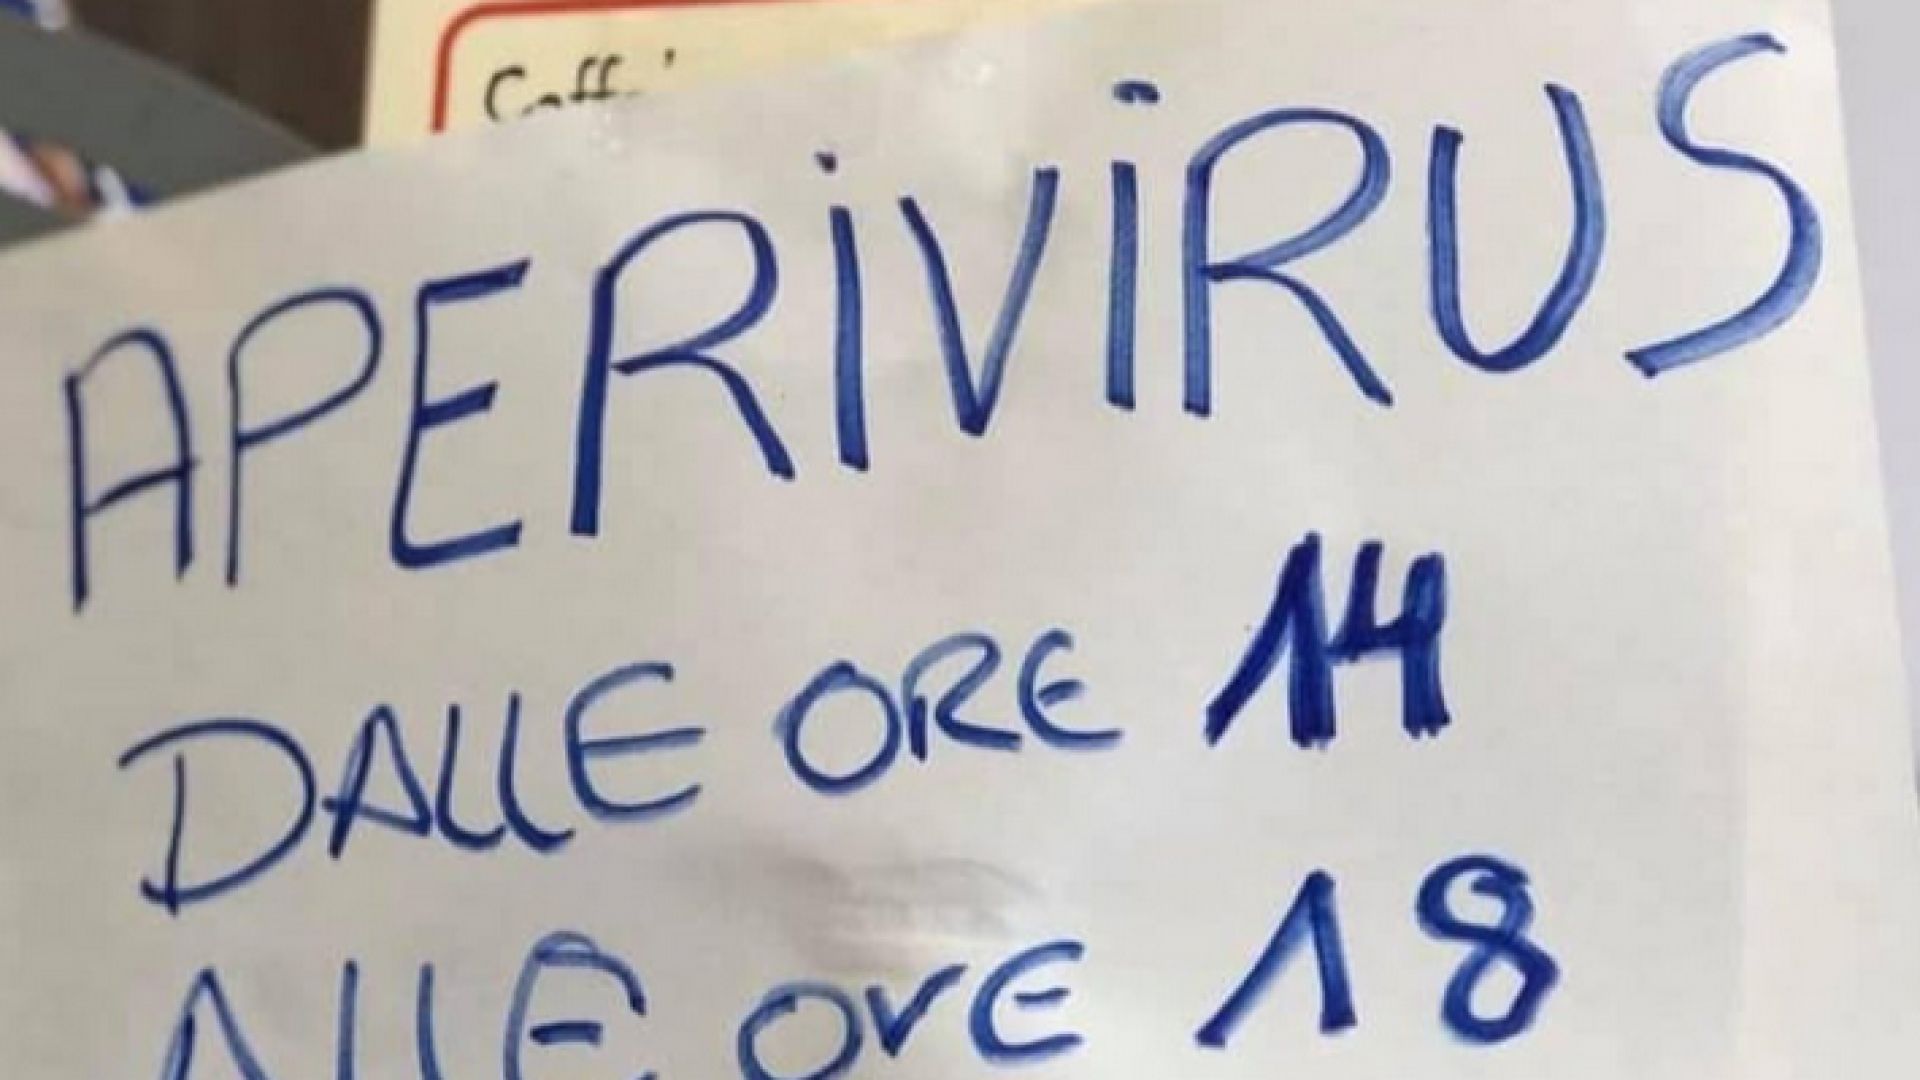 APERiViRUS
DALLE ORE 14
ALLE ORE 18